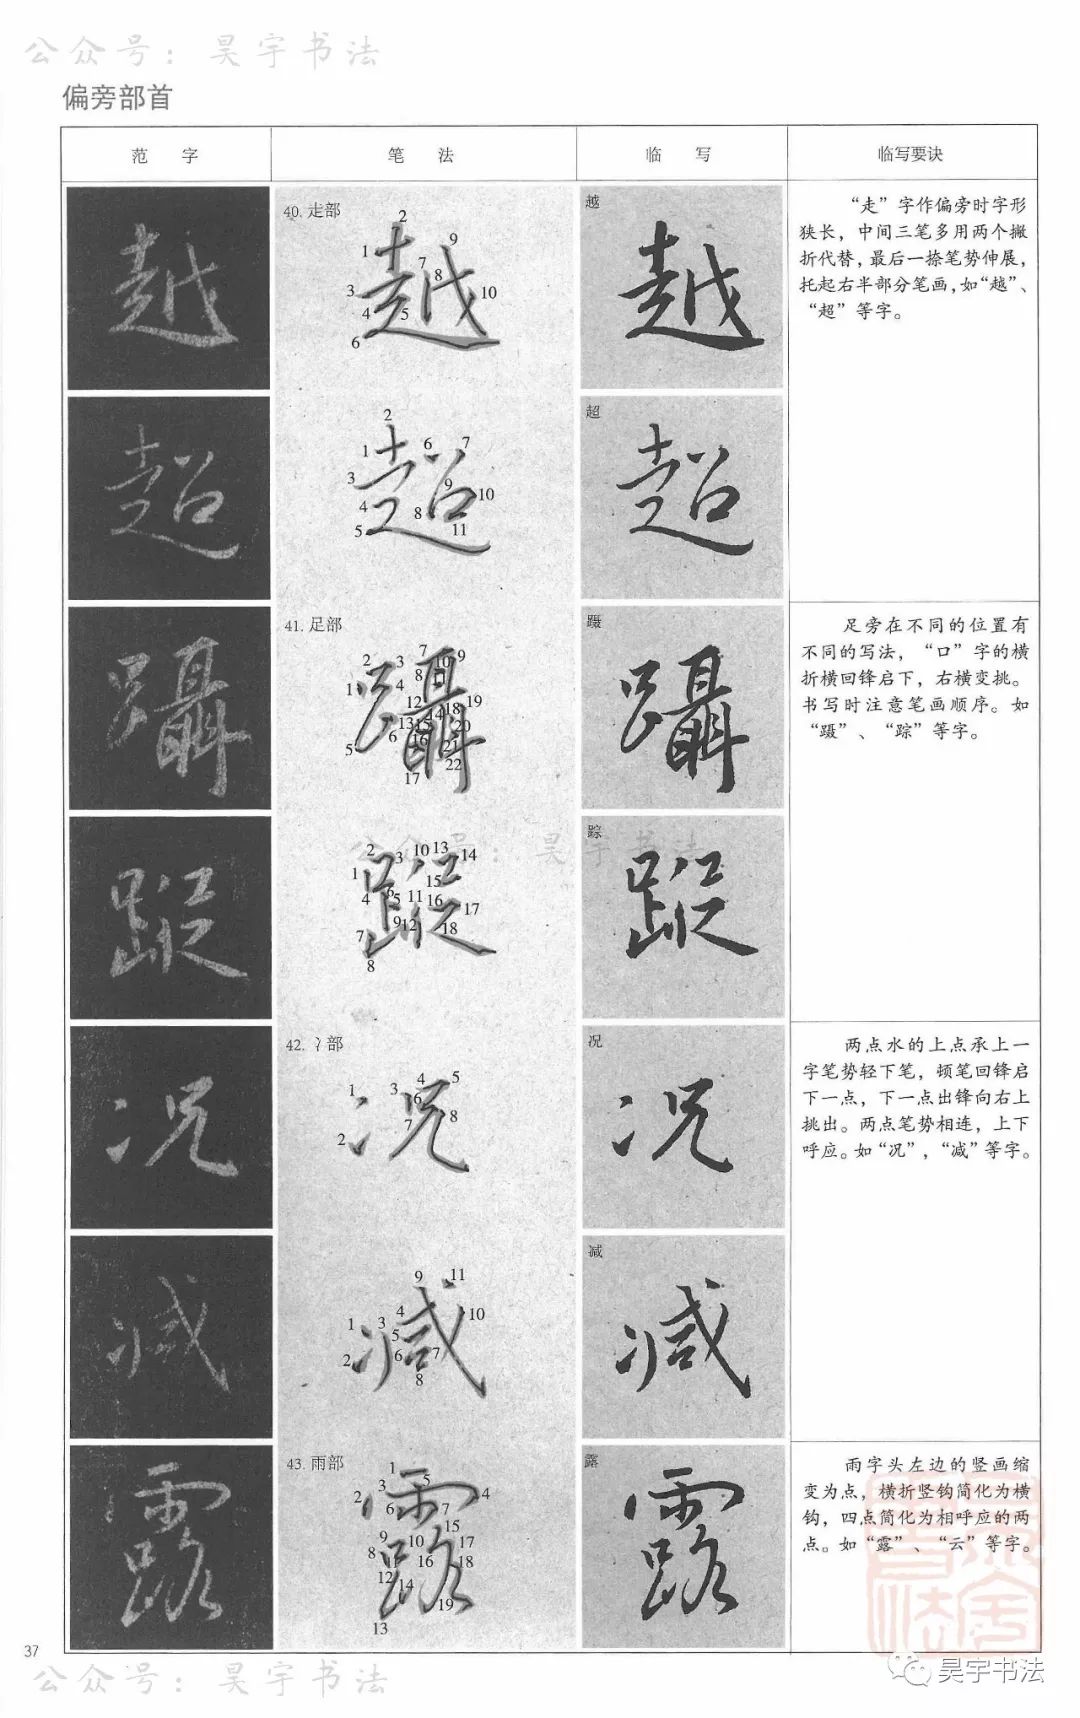 公众号：昊宇书法
偏旁部首
范 字
笔 法
临 写
临写要诀
40. 走部
越
“走”字作偏旁时字形
狭长，中间三笔多用两个撇
折代替，最后一捺笔势伸展，
托起右半部分笔画，如“越”、
“超”等字。
超
41. 足部
蹑
足旁在不同的位置有
不同的写法，“口”字的横
折横回锋启下，右横变挑。
书写时注意笔画顺序。如
“蹑”、“踪”等字。
公众号：昊宇书法
踪
42. 冫部
况
两点水的上点承上一
字笔势轻下笔，顿笔回锋启
下一点，下一点出锋向右上
挑出。两点笔势相连，上下
呼应。如“况”，“减”等字。
减
43. 雨部
露
雨字头左边的竖画缩
变为点，横折竖钩简化为横
钩，四点简化为相呼应的两
点。如“露”、“云”等字。
37
公众号：昊宇书法
昊宇书法